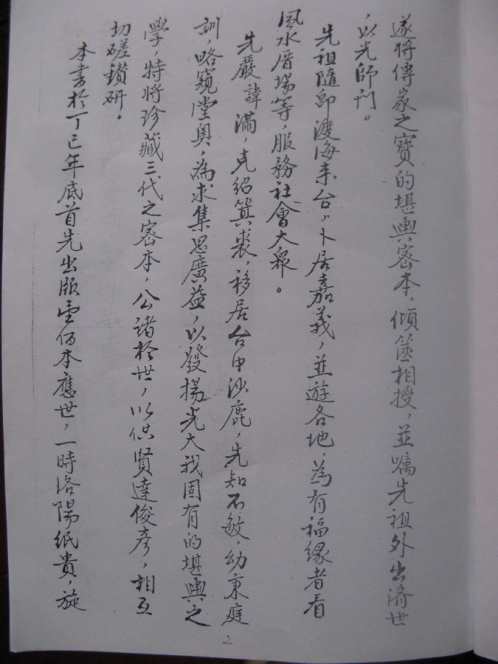 遂將傳家之寶的堪輿密本，傾箧相授，並囑先祖外出濟世
，以光師門。
先祖隨即渡海來台，卜居嘉義，並遊各地，為有福緣者看
風水厝場等，服務社會大眾。
先嚴諱滿，克紹箕裘，移居台中沙鹿，先知不敏幼秉庭
訓，略窺堂奥，為求集思廣益，以發揚光大我固有的堪輿之
學，特將珍藏三代之密本，公諸於世，以供賢達俊彥，相互
切磋鑽研。
本書於丁巳年底首先出版壹佰本應世，一時洛陽紙貴，旋
2